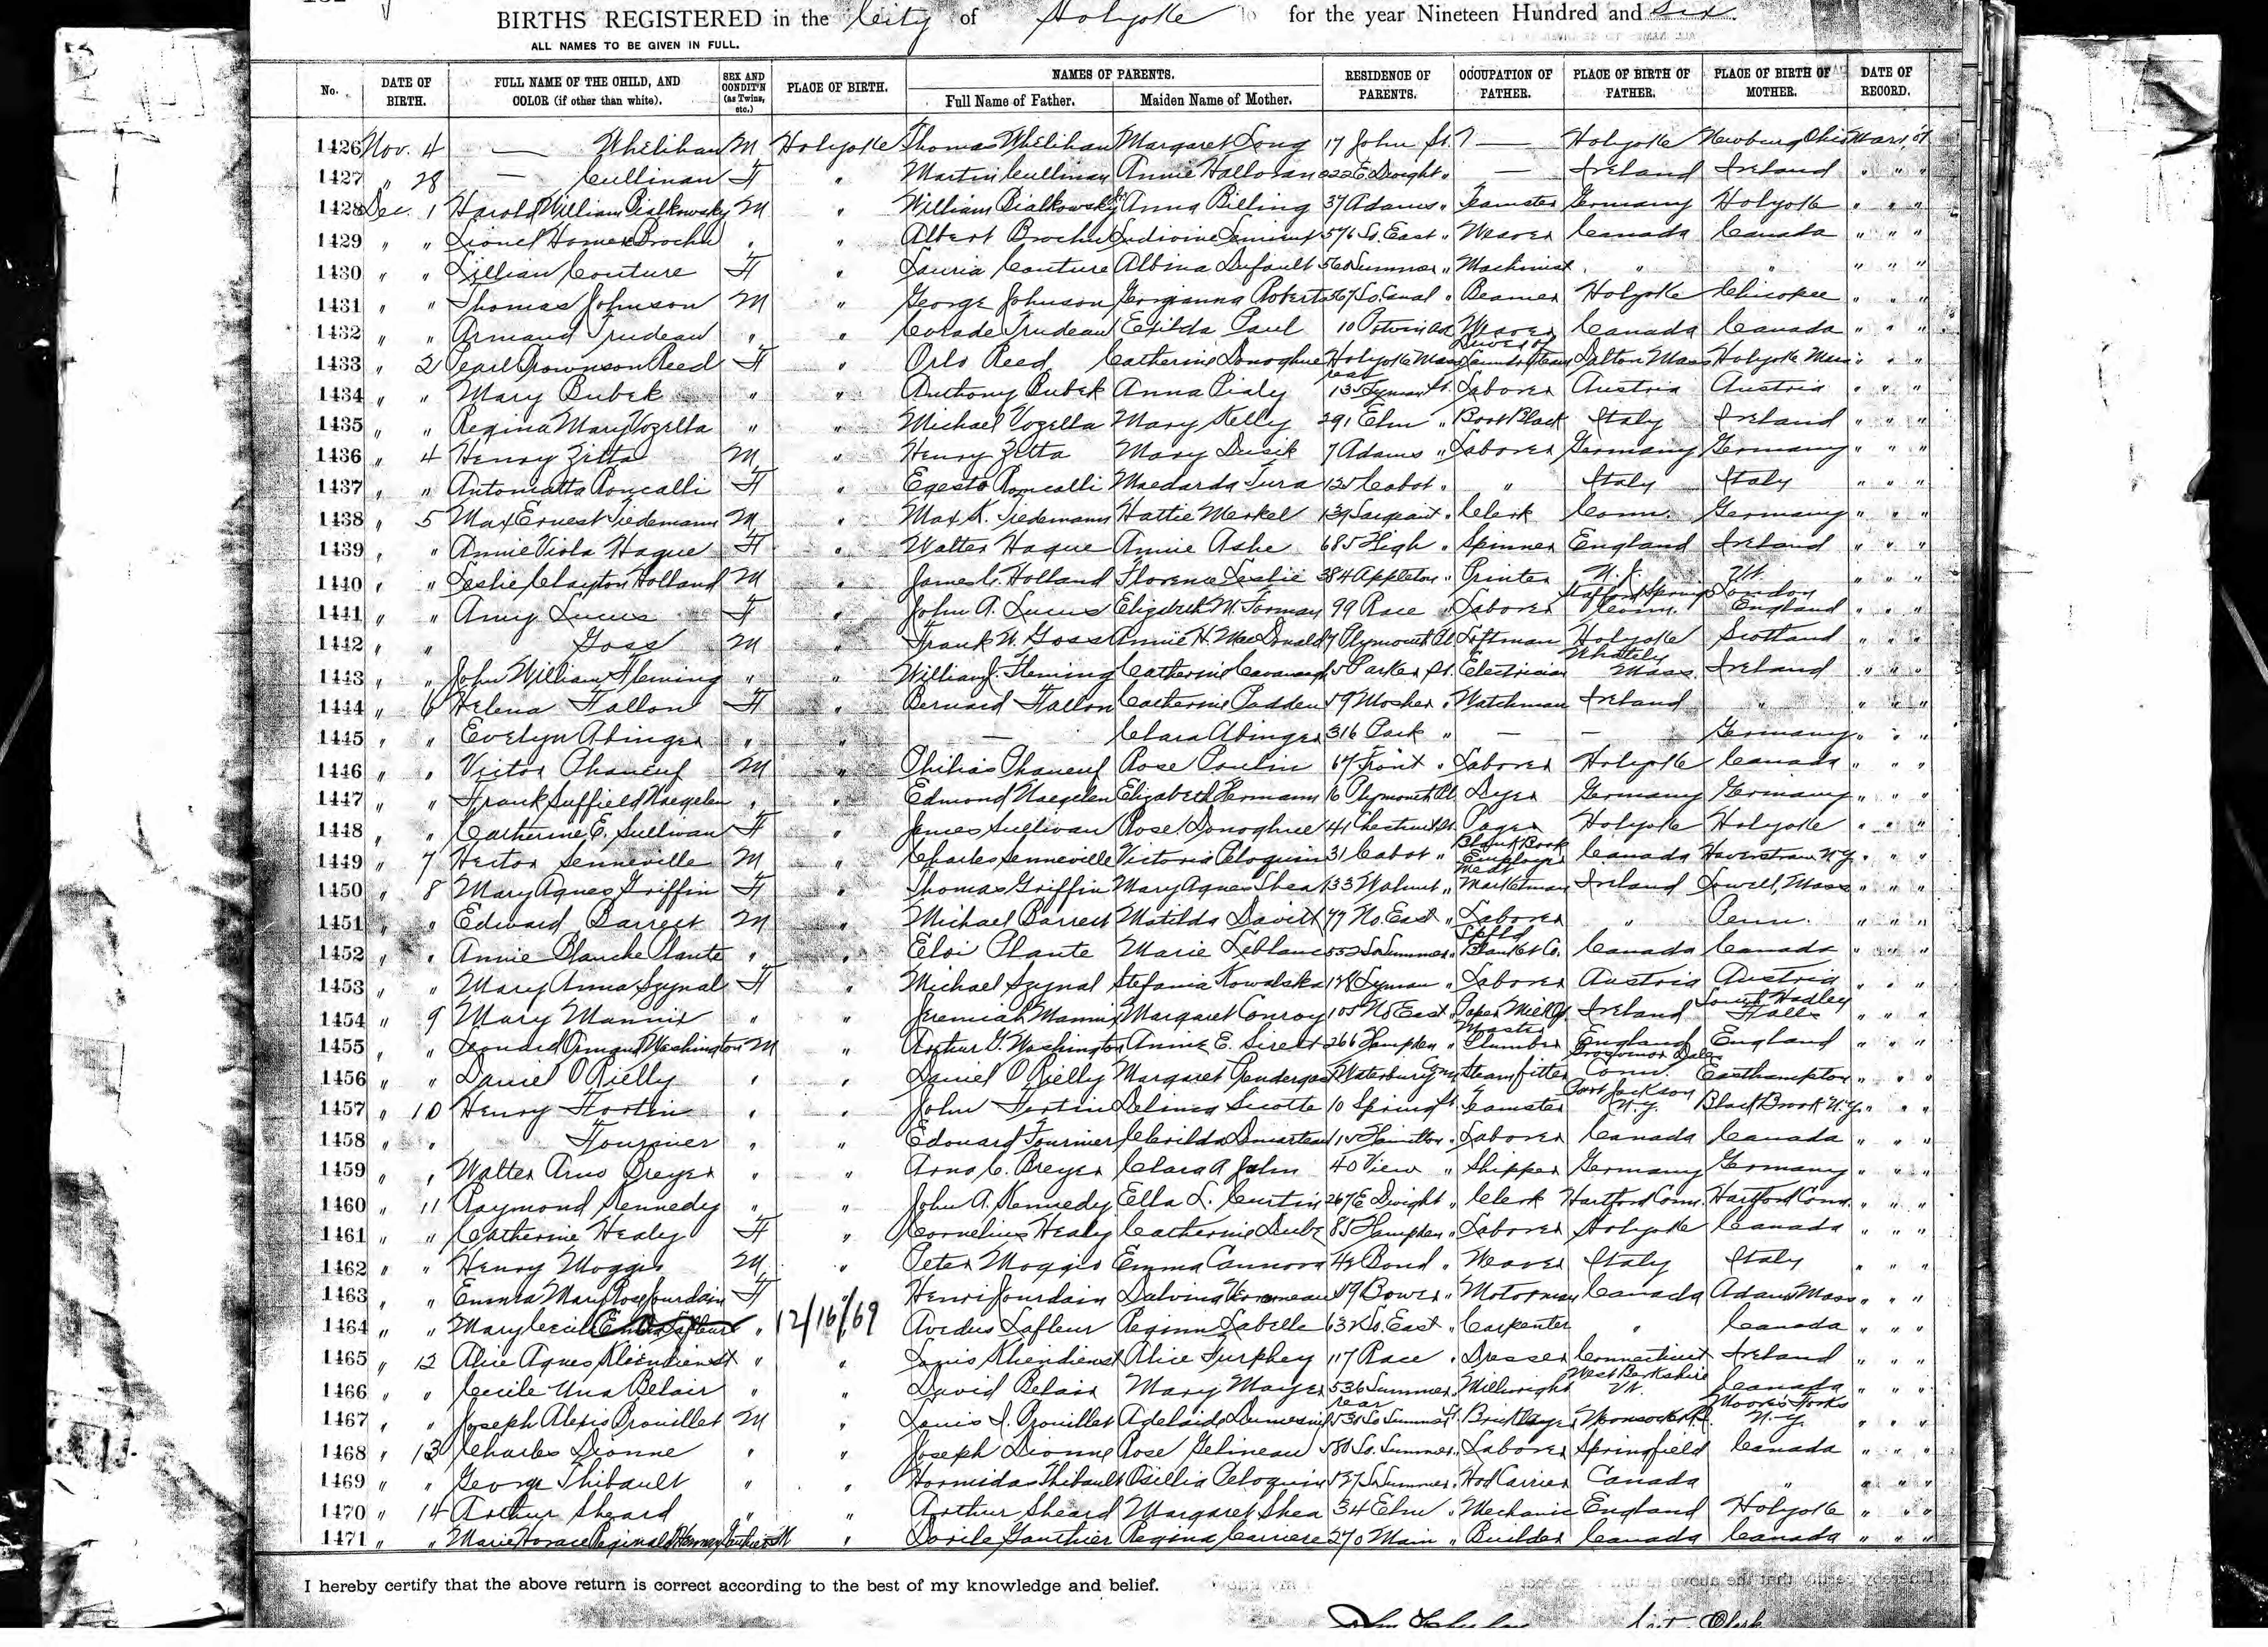 BIRTHS REGISTERED in the City of Holyoke for the year Nineteen Hundred and Six.
ALL NAMES TO BE GIVEN IN FULL.
No. DATE OF BIRTH. FULL NAME OF THE CHILD, AND COLOR (if other than white). SEX AND CONDIT'N (as Twins, etc.) PLACE OF BIRTH. NAMES OF PARENTS. Full Name of Father. Maiden Name of Mother. RESIDENCE OF PARENTS. OCCUPATION OF FATHER. PLACE OF BIRTH OF FATHER. PLACE OF BIRTH OF MOTHER. DATE OF RECORD.
1426 Nov. 4 — Whelihan M Holyoke Thomas Whelihan Margaret Long 17 John St. — Holyoke Newburg Ohio
1427 " 28 — Cullinan F " Martin Cullinan Annie Halloran 222 E Dwight " — Ireland Ireland " " "
1428 Dec. 1 Harold William Bialkowsky M " William Bialkowsky Anna Billing 37 Adams " Teamster Germany Holyoke " " "
1429 " " Lionel Homer Brochu " " Albert Brochu 576 So. East " Weaver Canada Canada " " "
1430 " " Lillian Couture F " Lauria Couture Albina Dufault 560 Summer " Machinist " " " " "
1431 " " Thomas Johnson M " George Johnson Georgianna Roberts 567 So. Canal " Beamer Holyoke Chicopee " " "
1432 " " Armand Trudeau " " Trudeau Exilda Paul 10 Weaver Canada Canada " " "
1433 " 2 Pearl Brownson Reed F " Orlo Reed Catherine Donoghue Holyoke Mass Driver of Laundry Team Dalton Mass Holyoke Mass " " "
1434 " " Mary Bubek " " Anthony Bubek Anna Pialy rear 135 Lyman St. Laborer Austria Austria " " "
1435 " " Regina Mary Vozella " " Michael Vozella Mary Kelly 291 Elm " Boot Black Italy Ireland " " "
1436 " 4 Henry Zitta M " Henry Zitta Mary Dusik 7 Adams " Laborer Germany Germany " " "
1437 " " Antonietta Roncalli F " Egesto Roncalli Maedarda Tura 125 Cabot " " Italy Italy " " "
1438 " 5 Max Ernest Tiedemann M " Max A. Tiedemann Hattie Merkel 139 Sargeant " Clerk Conn. Germany " " "
1439 " " Annie Viola Hague F " Walter Hague Annie Ashe 685 High " Spinner England Ireland " " "
1440 " " Leslie Clayton Holland M " James C. Holland Florence Leslie 384 Appleton " Printer N.J. Vt. " " "
1441 " " Amy Lucus F " John A. Lucus Elizabeth M. Forman 99 Race " Laborer Stafford Springs Conn. London England " " "
1442 " " Goss M " Frank W. Goss Annie H. MacDonald 7 Plymouth Pl Loftman Holyoke Scotland " " "
1443 " " John William Fleming " " William J. Fleming Catherine Cavanaugh 5 Parker St. Electrician Whately Mass. Ireland " " "
1444 " 6 Helena Fallon F " Bernard Fallon Catherine Padden 59 Mosher " Watchman Ireland " " " "
1445 " " Evelyn Abinger " " — Clara Abinger 316 Park " — — Germany " " "
1446 " " Victor Phaneuf M " Philias Phaneuf Rose Poulin 67 Front " Laborer Holyoke Canada " " "
1447 " " Frank Suffield Naegelen " " Edmond Naegelen Elizabeth Hermann 16 Plymouth Pl Dyer Germany Germany " " "
1448 " " Catherine E. Sullivan F " James Sullivan Rose Donoghue 41 Chestnut St Pager Holyoke Holyoke " " "
1449 " 7 Hector Senneville M " Charles Senneville Victoria Peloquin 31 Cabot " Blank Book Employe Canada Haverstraw N.Y. " " "
1450 " 8 Mary Agnes Griffin F " Thomas Griffin Mary Agnes Shea 133 Walnut " Meat Marketman Ireland Lowell, Mass " " "
1451 " " Edward Barrett M " Michael Barrett Matilda Davitt 77 No. East " Laborer " Penn. " " "
1452 " " Annie Blanche Plante " " Eloi Plante Marie Leblanc 552 So Summer " Spfld Blanket Co. Canada Canada " " "
1453 " " Mary Anna Szynal F " Michael Szynal Stefania Kowalska 128 Lyman " Laborer Austria Austria " " "
1454 " 9 Mary Mannix " " Jeremiah Mannix Margaret Conroy 105 No East " Paper Mill Ireland South Hadley Falls " " "
1455 " " Leonard Armand Washington M " Arthur G. Washington Annie E. 266 Hampden " Master Plumber England England " " "
1456 " " Daniel O'Rielly " " Daniel O'Rielly Margaret Pendergast Waterbury Conn Steamfitter Grosvenor Dale Conn. Easthampton " " "
1457 " 10 Henry Fortin " " John Fortin Delima Sicotte 10 Spring St. Teamster Port Jackson N.Y. Black Brook N.Y. " " "
1458 " " Fournier " " Edouard Fournier 115 Hamilton " Laborer Canada Canada " " "
1459 " " Walter Arno Breyer " " Arno C. Breyer Clara A John 40 View " Shipper Germany Germany " " "
1460 " 11 Raymond Kennedy " " John A. Kennedy Ella L. Curtin 267 E Dwight " Clerk Hartford Conn. Hartford Conn. " " "
1461 " " Catherine Healy F " Cornelius Healy Catherine Dube 85 Hampden " Laborer Holyoke Canada " " "
1462 " " Henry Moggis M " Peter Moggio Emma Cannova 42 Bond " Weaver Italy Italy " " "
1463 " " Emma Mary Rose Jourdain F " Henri Jourdain Dalvina 59 Bower " Motorman Canada Adams Mass " " "
1464 " " Mary Cecile Emma Lafleur " 12/16/69 Avedus Lafleur Regina Labelle 632 So. East " Carpenter " Canada " " "
1465 " 12 Alice Agnes Khiendienst " " Louis Khiendienst Alice Turphey 117 Race " Dresser Connecticut Ireland " " "
1466 " " Cecile Una Belair " " David Belair Mary Mayer 536 Summer " Millwright West Berkshire Vt. Canada " " "
1467 " " Joseph Alexis Brouillet M " Louis J. Brouillet Adelaide Dumesnil rear 538 So Summer St. Bricklayer Woonsocket R.I. Moores Forks N.Y. " " "
1468 " 13 Charles Dionne " " Joseph Dionne Rose Gelineau 580 So. Summer " Laborer Springfield Canada " " "
1469 " " George Thibault " " Hormidas Thibault Osillia Peloquin 537 So Summer " Hod Carrier Canada " " " "
1470 " 14 Arthur Sheard " " Arthur Sheard Margaret Shea 34 Elm " Mechanic England Holyoke " " "
1471 " " Marie Horace Reginald Herman Gauthier M " Dorile Gauthier Regina Carriere 270 Main " Builder Canada Canada " " "
I hereby certify that the above return is correct according to the best of my knowledge and belief.
City Clerk